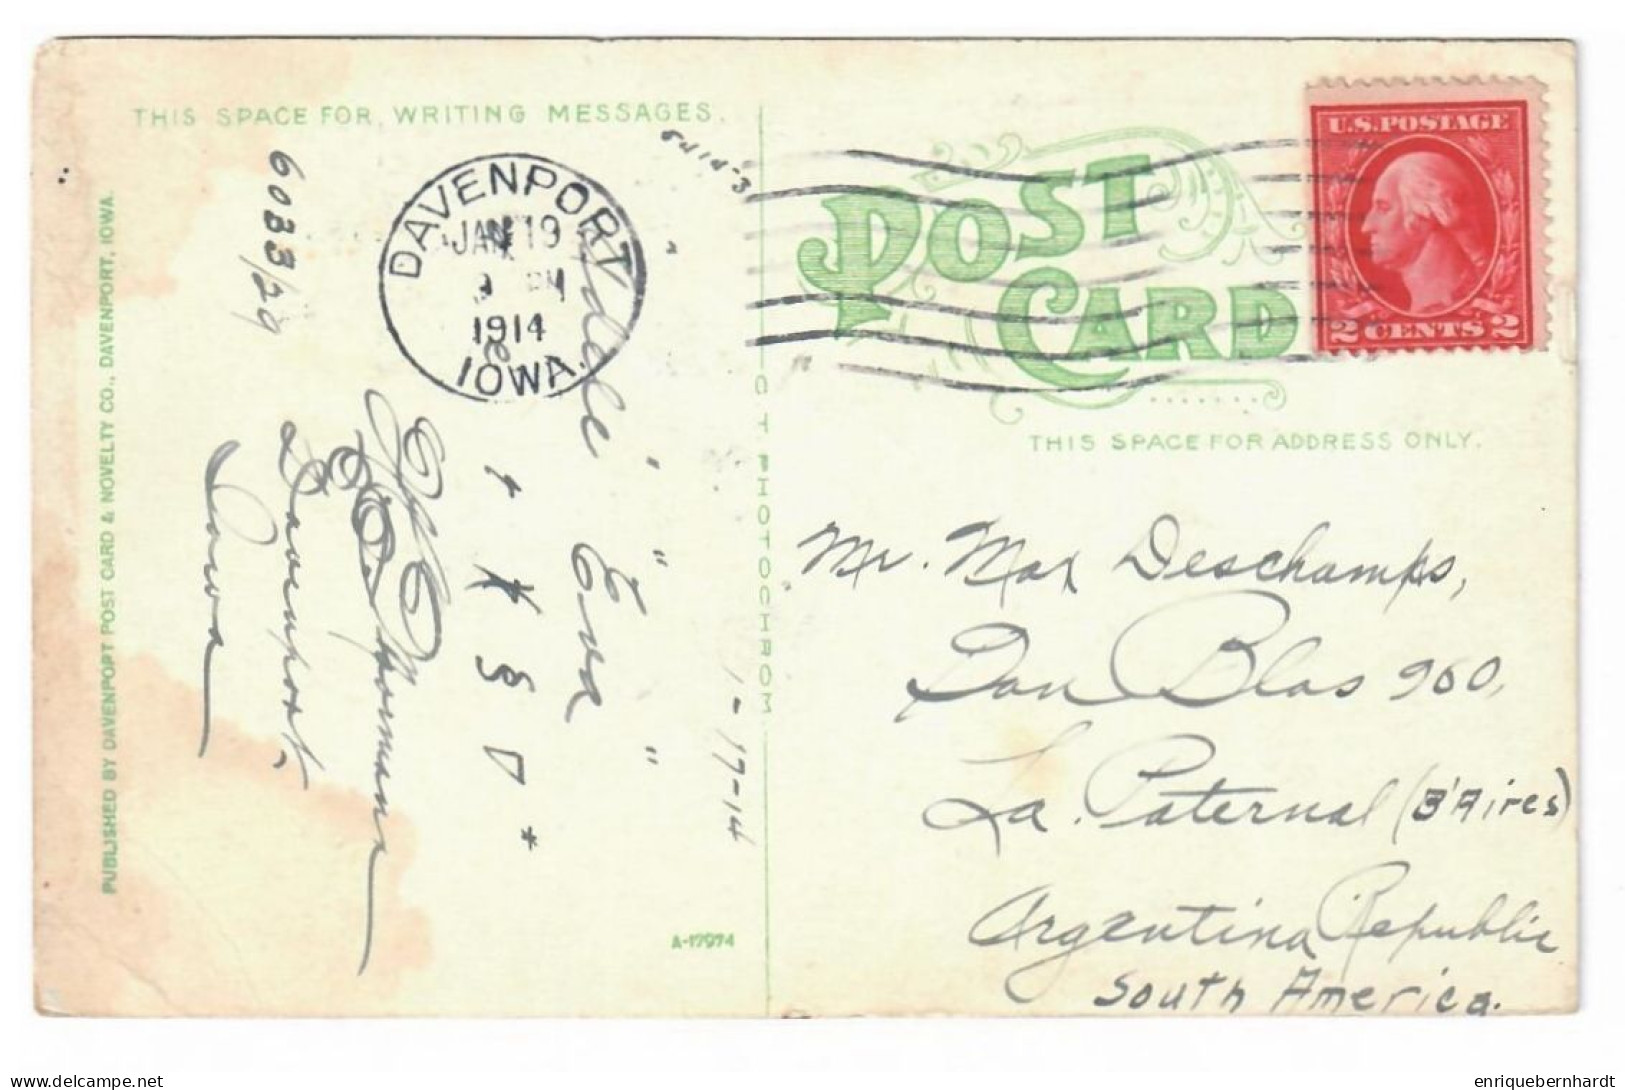 THIS SPACE FOR WRITING MESSAGES.
PUBLISHED BY DAVENPORT POST CARD & NOVELTY CO., DAVENPORT, IOWA.
DAVENPORT
JAN 19
PM
1914
IOWA.
6083/29
"Eva"
1-17-14
Davenport,
Iowa
A-17974
C T PHOTOCHROM
POST
CARD
U.S. POSTAGE
2 CENTS 2
THIS SPACE FOR ADDRESS ONLY.
Mr. Max Deschamps,
San Blas 960,
La. Paternal (B'Aires)
Argentina Republic
South America.
delcampe.net
enriquebernhardt